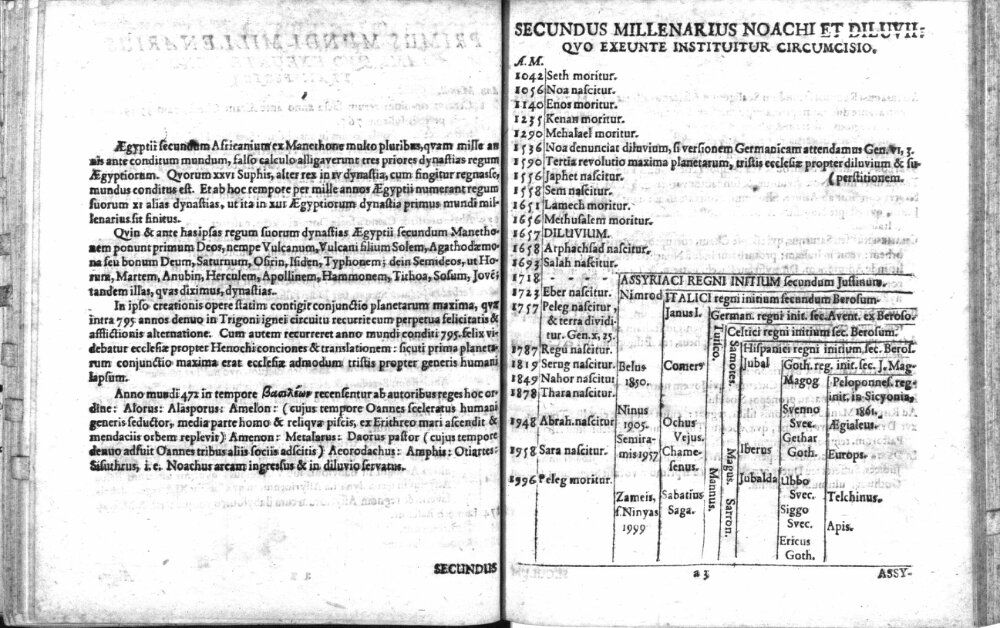 Ægyptii secundum Africanium ex Manethone multo pluribus, quam mille an
nis ante conditum mundum, falso calculo alligaverunt tres priores dynastias regum
Ægyptiorum. Qvorum XXVI Suphis, alter rex in IV dynastia, cum fingitur regnasse,
mundus conditus est. Et ab hoc tempore per mille annos Ægyptii numerant regum
suorum XI alias dynastias, ut ita in XIII Ægyptiorum dynastia primus mundi mil-
lenarius sit finitus.
Qvin & ante has ipsas regum suorum dynastias Ægyptii secundum Manetho-
nem ponunt primum Deos, nempe Vulcanum, Vulcani filium Solem, Agathodæmo-
na seu bonum Deum, Saturnum, Osirin, Isiden, Typhonem; dein Semideos, ut Ho-
rum, Martem, Anubin, Herculem, Apollinem, Hammonem, Tithoa, Sosum, Jovē:
tandem illas, qvas diximus, dynastias.
In ipso creationis opere statim contigit conjunctio planetarum maxima, qvæ
intra 795 annos denuo in Trigoni ignei circuitu recurrit cum perpetua felicitatis &
afflictionis alternatione. Cum autem recurreret anno mundi conditi 795. felix vi-
debatur ecclesiæ propter Henochi conciones & translationem: sicuti prima planeta-
rum conjunctio maxima erat ecclesiæ admodum tristis propter generis humani
lapsum.
Anno mundi 472 in tempore βασιλέων recensentur ab autoribus reges hoc or-
dine: Alorus: Alasporus: Amelon: (cujus tempore Oannes sceleratus humani
generis seductor, media parte homo & reliqva piscis, ex Erithreo mari ascendit &
mendaciis orbem replevit) Amenon: Metalarus: Daorus pastor (cujus tempore
denuo adfuit Oannes tribus aliis sociis adscitis) Aeorodachus: Amphis: Otiartes:
Sisuthrus, i. e. Noachus arcam ingressus & in diluvio servatus.
SECUNDUS
SECUNDUS MILLENARIUS NOACHI ET DILUVII:
QVO EXEUNTE INSTITUITUR CIRCUMCISIO.
A. M.
1042 Seth moritur.
1056 Noa nascitur.
1140 Enos moritur.
1235 Kenan moritur.
1290 Mehalael moritur.
1536 Noa denunciat diluvium, si versionem Germanicam attendamus Gen. VI, 3.
1590 Tertia revolutio maxima planetarum, tristis ecclesiæ propter diluvium & su-
1556 Japhet nascitur. (perstitionem.
1558 Sem nascitur.
1651 Lamech moritur.
1656 Methusalem moritur.
1657 DILUVIUM.
1658 Arphachsad nascitur.
1693 Salah nascitur.
1718 - - - - ASSYRIACI REGNI INITIUM secundum Justinum.
1723 Eber nascitur. Nimrod ITALICI regni initium secundum Berosum.
1757 Peleg nascitur, Janus I. German. regni init. sec. Avent. ex Beroso.
& terra dividi- Tuisco. Celtici regni initium sec. Berosum.
tur. Gen. x, 25. Samotes. Hispanici regni initium, sec. Beros.
1787 Regu nascitur. Jubal Goth. reg. init. sec. J. Mag.
1819 Serug nascitur. Belus Comerus Magog Peloponnes. reg-
1849 Nahor nascitur 1850. init. in Sicyonia,
1878 Thara nascitur. Svenno 1861.
Ninus Svec. Ægialeus.
1948 Abrah. nascitur 1905. Ochus Gethar
Semira- Vejus. Iberus Goth. Europs.
1958 Sara nascitur. mis 1957 Chame-
senus. Mannus. Magus. Jubalda Ubbo
1996 Peleg moritur. Svec. Telchinus.
Zameis, Sabatius Sarron. Siggo
f. Ninyas Saga. Svec. Apis.
1999 Ericus
Goth.
a 3 ASSY-